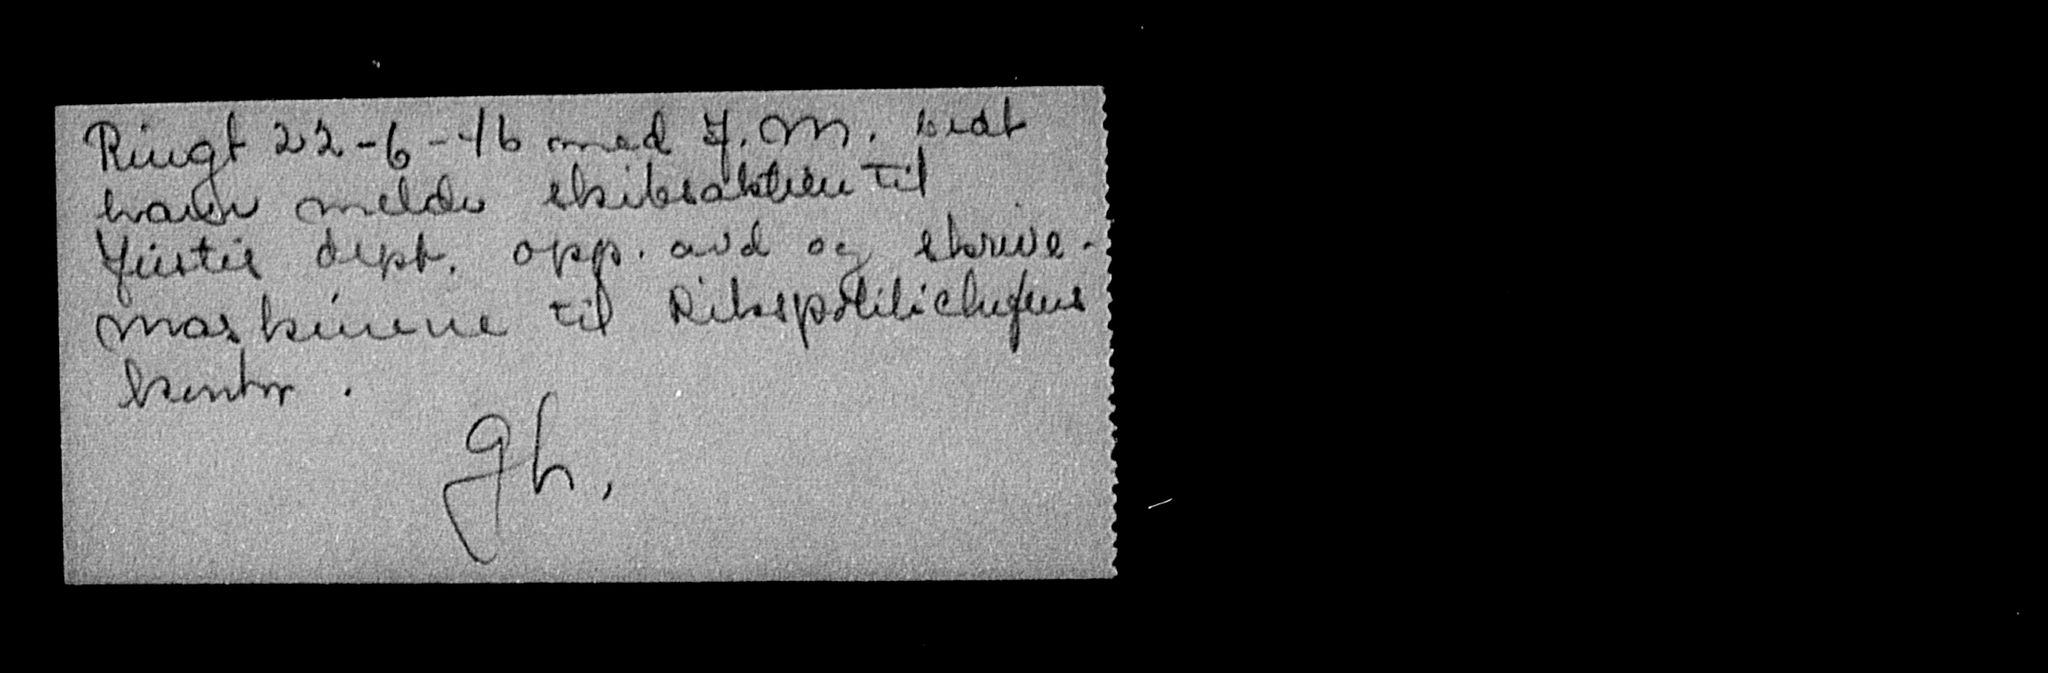 Ringt 22-6-46 med J.M. bedt
ham melde skibsaktien til
Justis dept. opp. avd og skrive-
maskinene til Rikspolitichefens
kontor.
Gh.